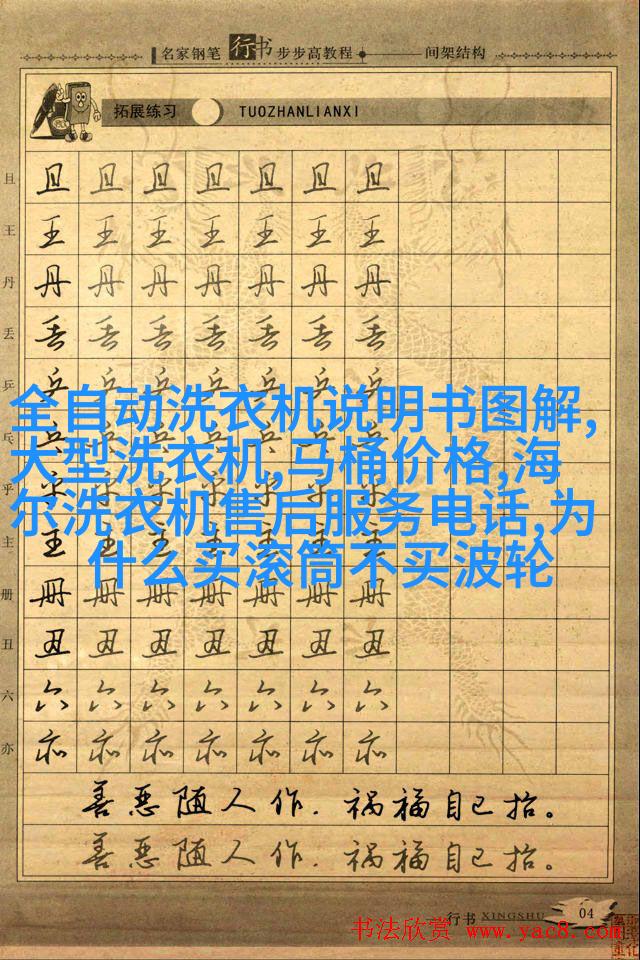 名家钢笔行书步步高教程 间架结构
拓展练习 TUOZHANLIANXI
且 且 且 且 且 且 且 且
王 王 王 王 王 王 王 王
丹 丹 丹 丹 丹 丹 丹 丹
丢 丢 丢 丢 丢 丢 丢 丢
乒 乒 乒 乒 乒 乒 乒 乒
全自动洗衣机说明书图解,
乓 乓 乓 乓 乓 乓 乓 乓
大型洗衣机,马桶价格,海
乎 乎 乎 乎 乎 乎 乎 乎
尔洗衣机售后服务电话,为
主 主 主 主 主 主 主 主
什么买滚筒不买波轮
册 册 册 册 册 册 册 册
丑 丑 丑 丑 丑 丑 丑 丑
六 六 六 六 六 六 六 六
亦 亦 亦 亦 亦 亦 亦 亦
善恶随人作.祸福自己招。
善恶随人作.祸福自己招。
行书 XINGSHU 04
书法欣赏 www.yac8.com